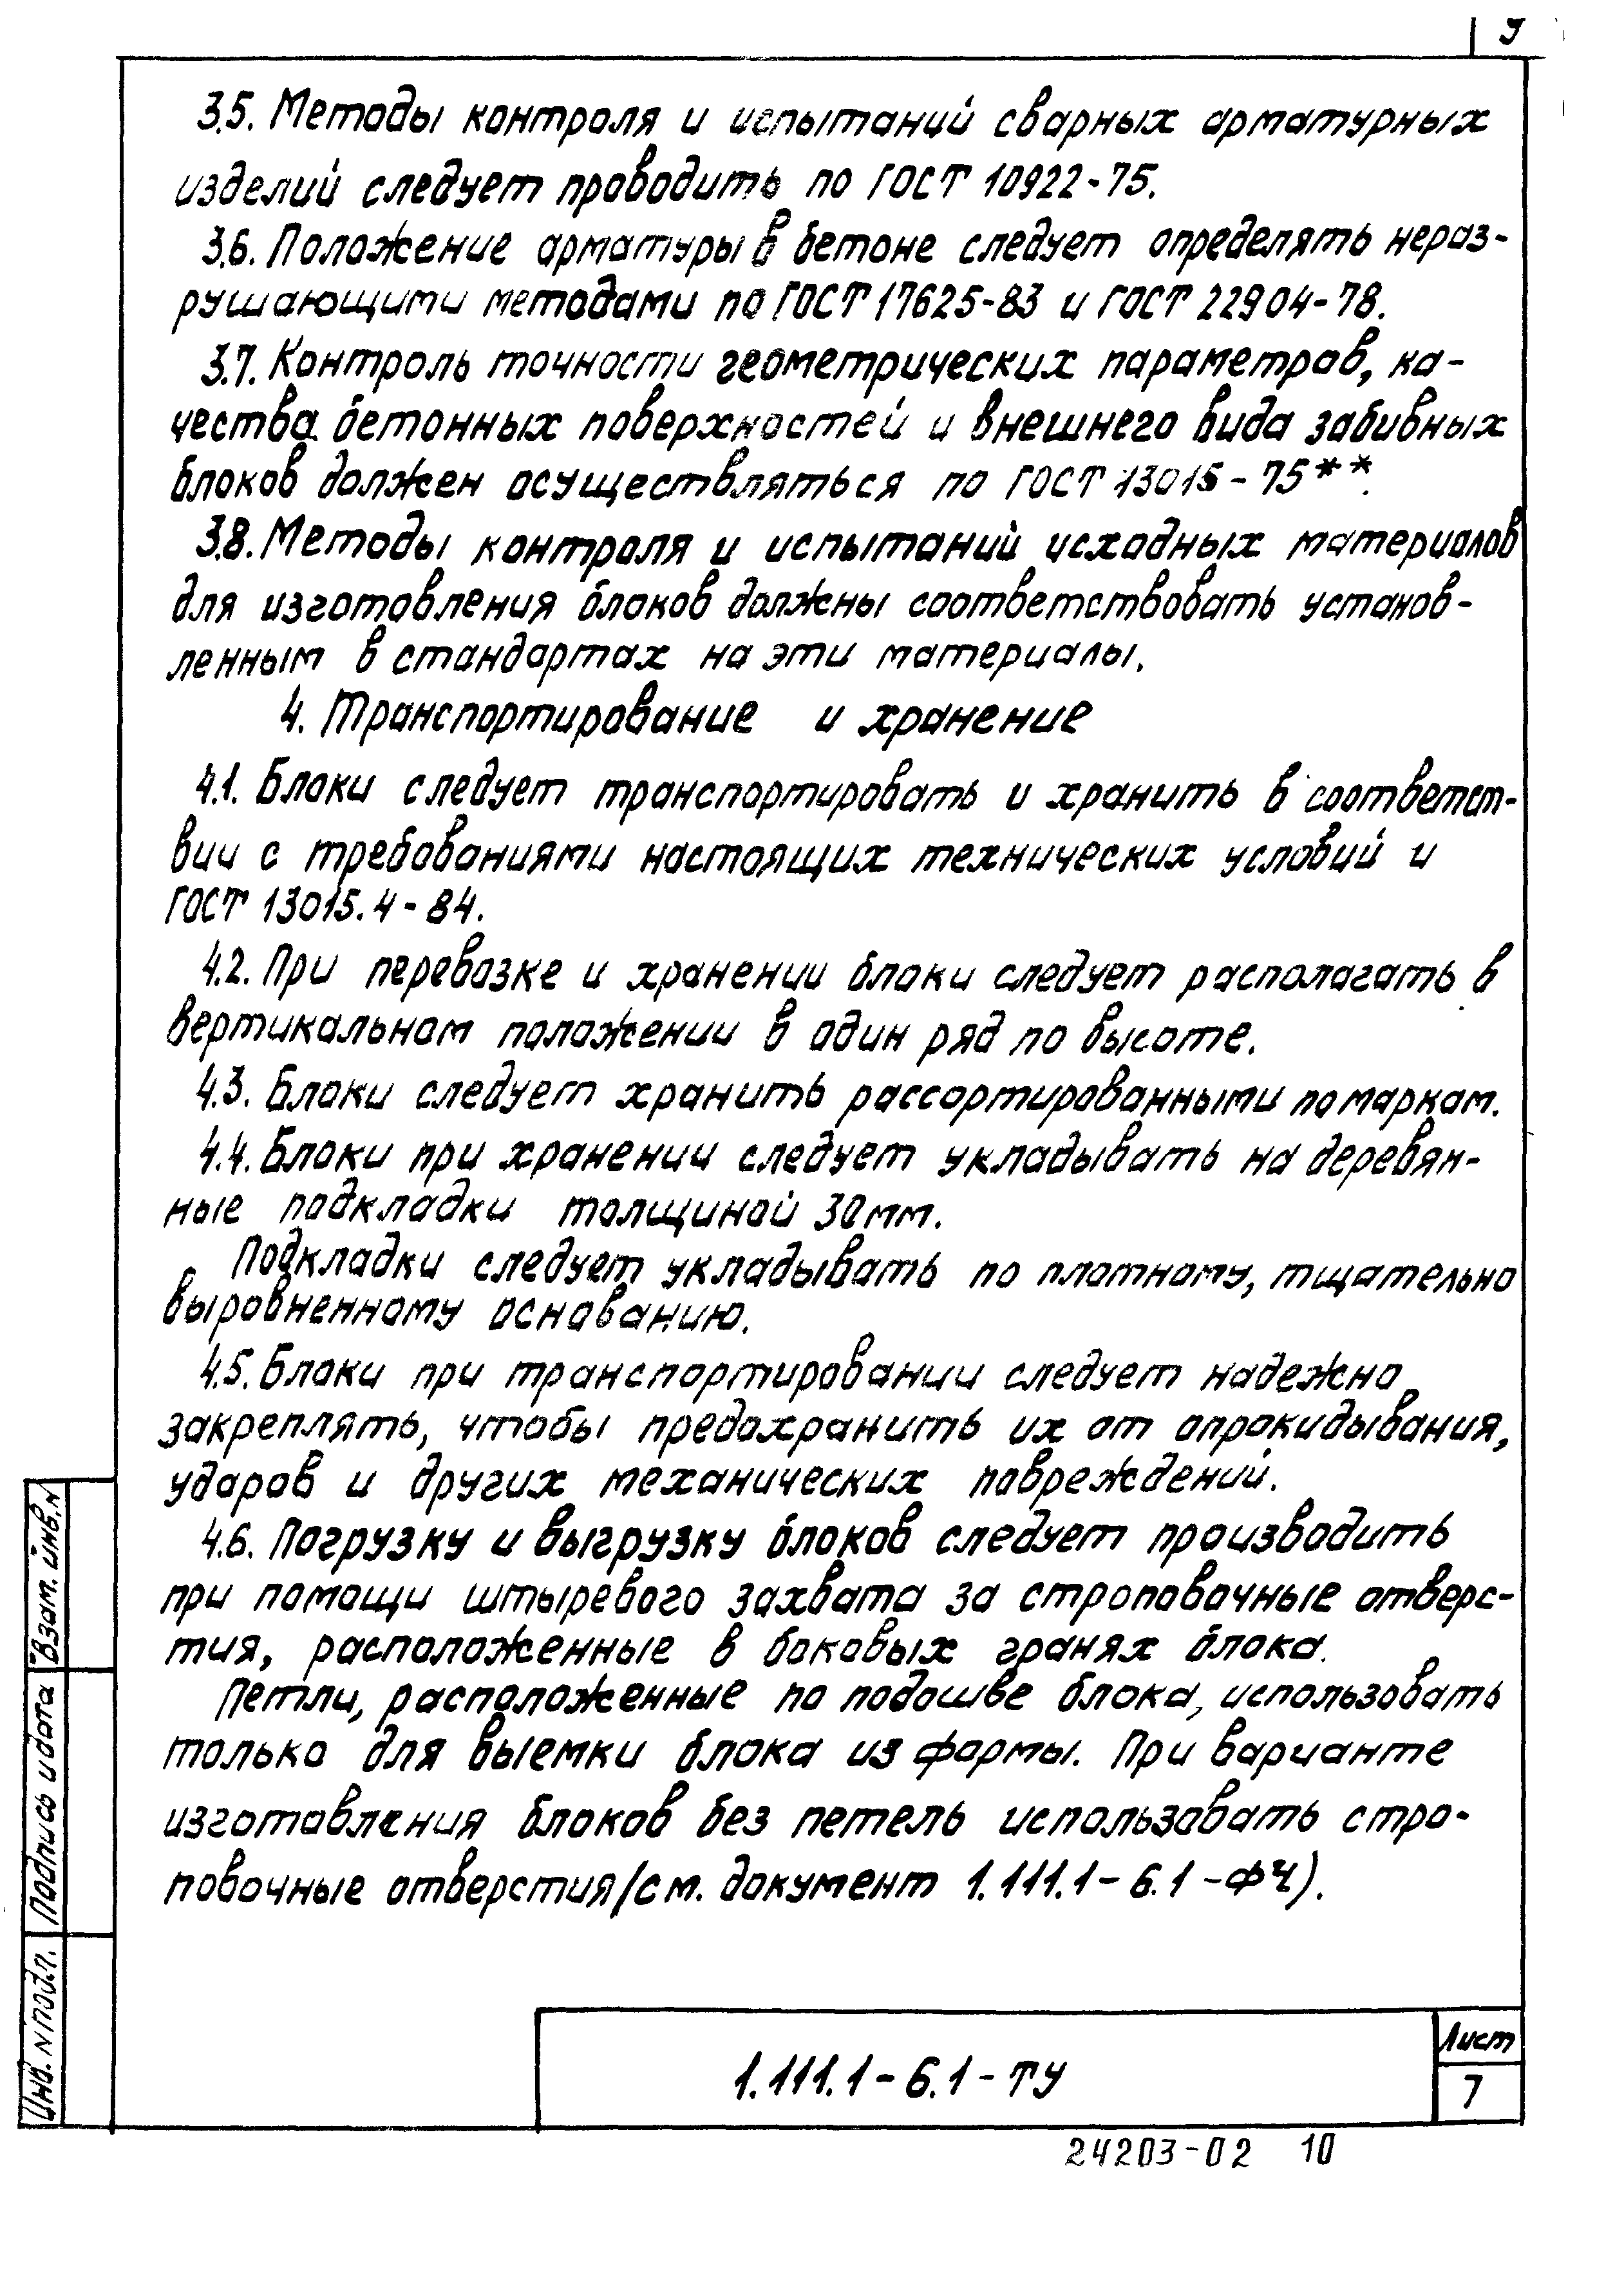 9
3.5. Методы контроля и испытаний сварных арматурных
изделий следует проводить по ГОСТ 10922-75.
3.6. Положение арматуры в бетоне следует определять нераз-
рушающими методами по ГОСТ 17625-83 и ГОСТ 22904-78.
3.7. Контроль точности геометрических параметров, ка-
чества бетонных поверхностей и внешнего вида забивных
блоков должен осуществляться по ГОСТ 13015-75**.
3.8. Методы контроля и испытаний исходных материалов
для изготовления блоков должны соответствовать установ-
ленным в стандартах на эти материалы.
4. Транспортирование и хранение
4.1. Блоки следует транспортировать и хранить в соответст-
вии с требованиями настоящих технических условий и
ГОСТ 13015.4-84.
4.2. При перевозке и хранении блоки следует располагать в
вертикальном положении в один ряд по высоте.
4.3. Блоки следует хранить рассортированными по маркам.
4.4. Блоки при хранении следует укладывать на деревян-
ные подкладки толщиной 30мм.
Подкладки следует укладывать по плотному, тщательно
выровненному основанию.
4.5. Блоки при транспортировании следует надежно
закреплять, чтобы предохранить их от опрокидывания,
ударов и других механических повреждений.
4.6. Погрузку и выгрузку блоков следует производить
при помощи штыревого захвата за строповочные отверс-
тия, расположенные в боковых гранях блока.
Петли, расположенные по подошве блока, использовать
только для выемки блока из формы. При варианте
изготовления блоков без петель использовать стро-
повочные отверстия/см. документ 1.111.1-6.1-ФЧ).
Взам. инв. N
Подпись и дата
Инв. N подл.
1.111.1-6.1-ТУ
Лист
7
24203-02 10